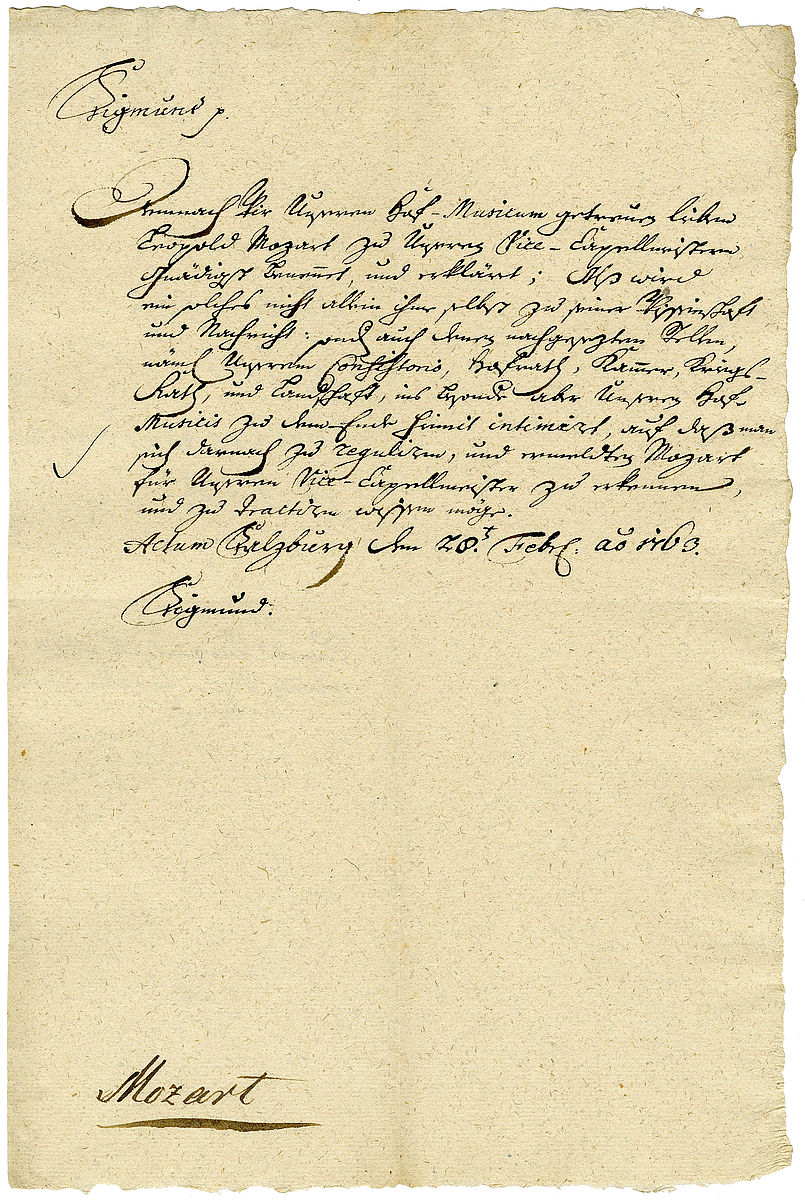 Sigmund p.
Demnach Wir Unseren Hof-Musicum getreuen lieben
Leopold Mozart zu Unseren Vice-Capellmeistern
gnädigst benennet, und erklärt; Alß wird
ein solches nicht allein ihme selbst zu seiner Wissenschaft
und Nachricht: sond auch denen nachgesezten Stellen,
näml Unserem Consistorio, Hofrath, Kammer, Kriegs-
Rath, und Landschaft, ins besonde aber Unseren Hof-
Musicis zu dem Ende hiemit intimirt, auf daß man
sich darnach zu reguliren, und ermeldten Mozart
für Unseren Vice-Capellmeister zu erkennen,
und zu tractiren wissen möge.
Actum Salzburg den 28.t Febr: ao 1763.
Sigmund:
Mozart